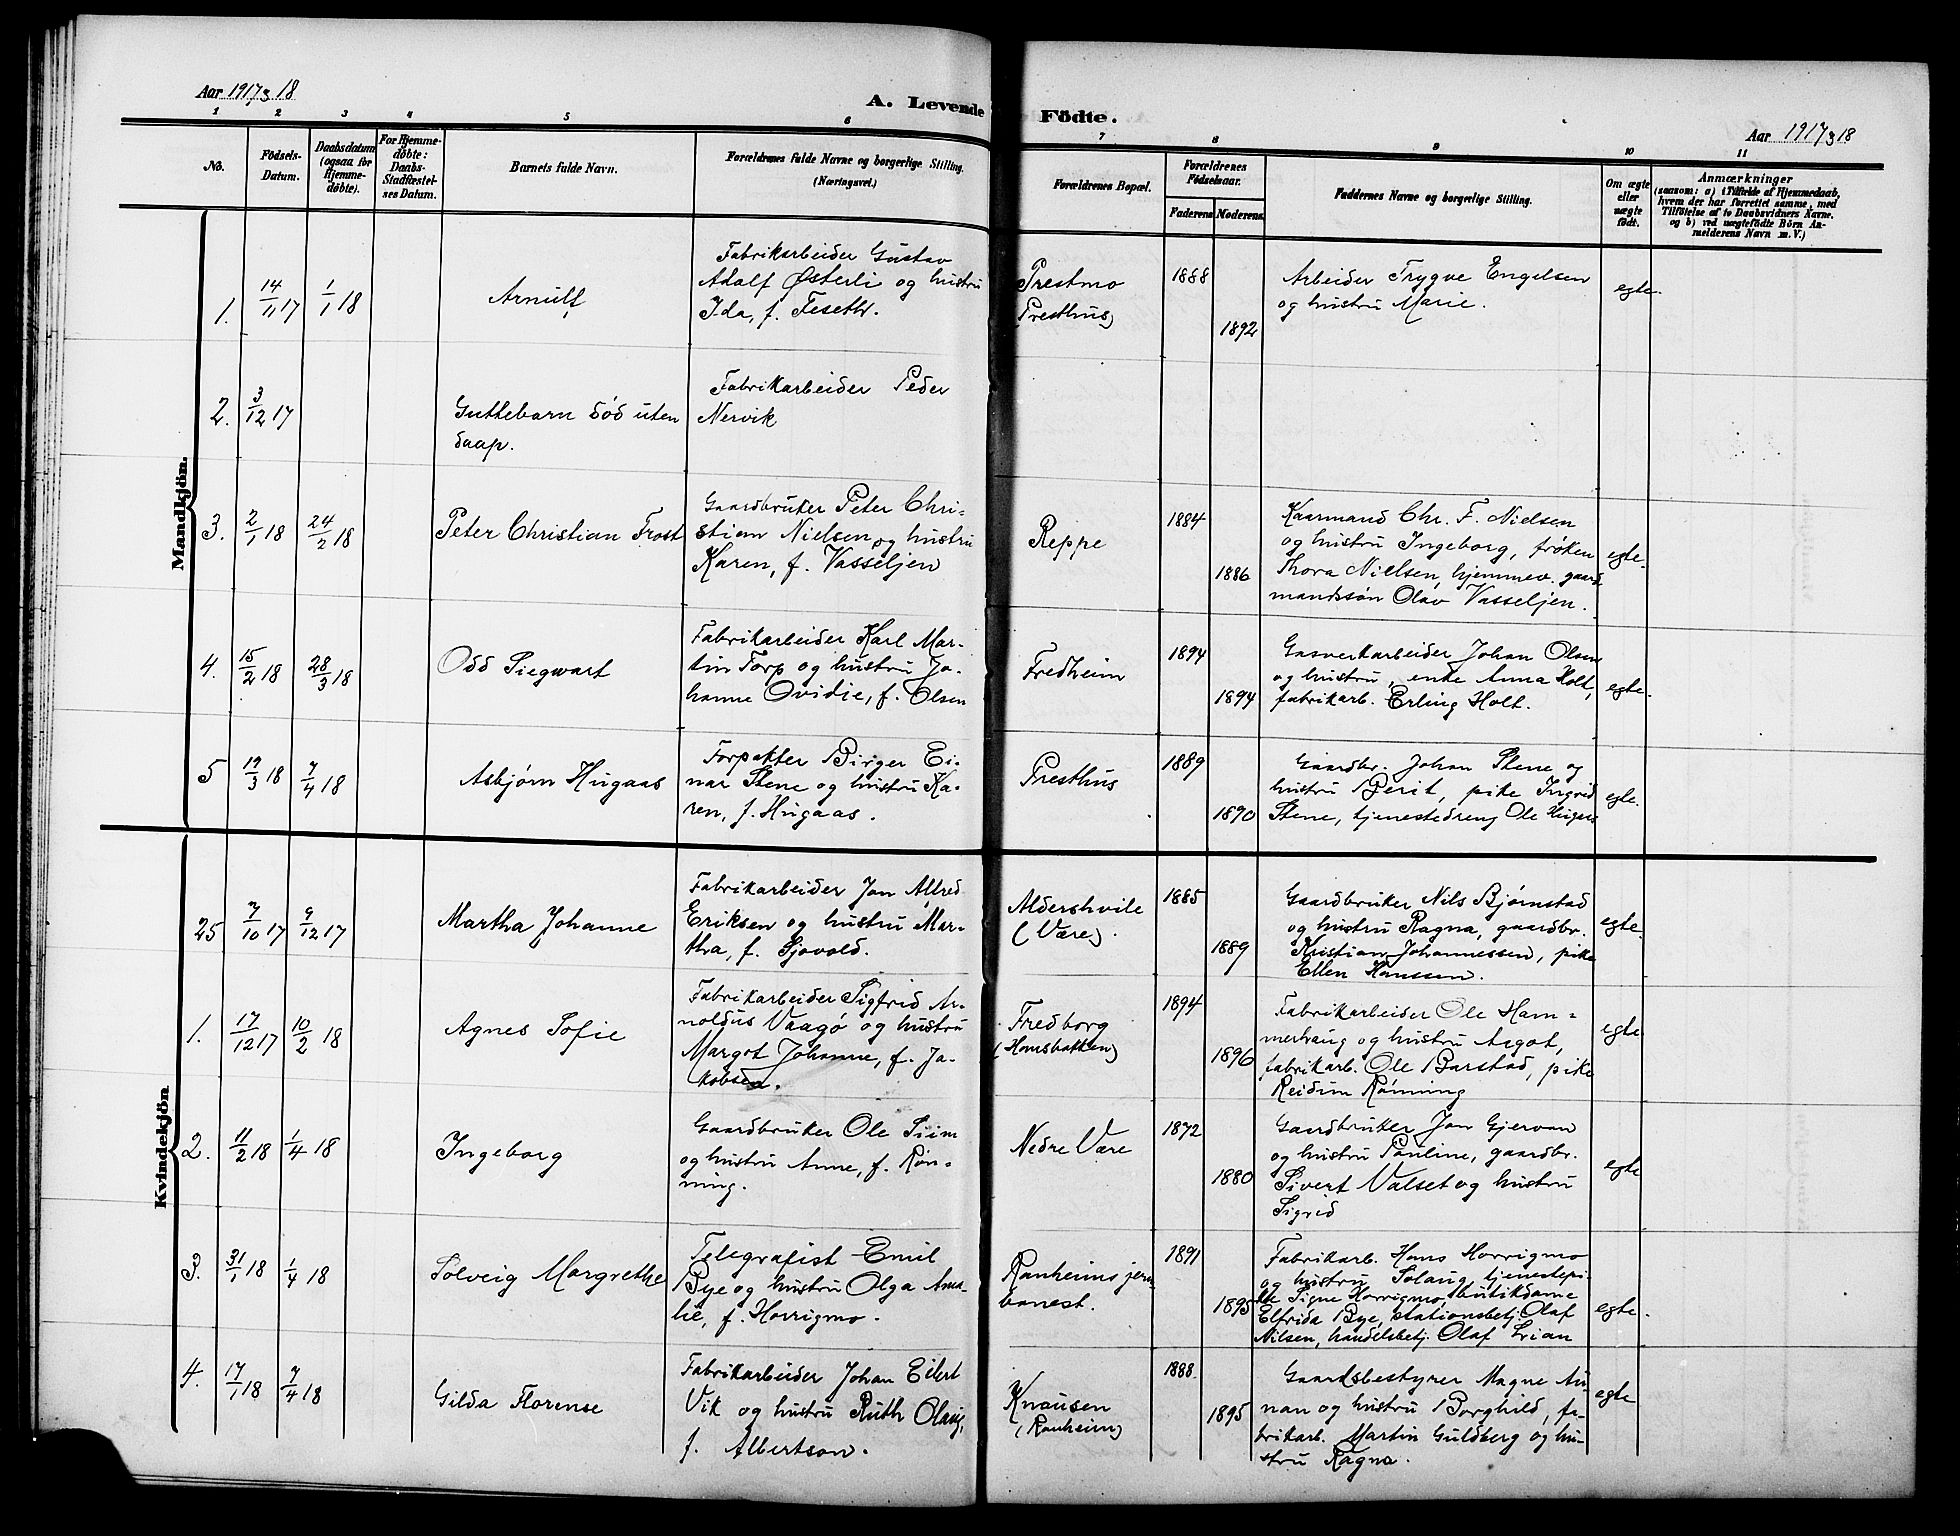 Aar 1917 og 18
A. Levende Födte.
Aar 1917 og 18
1 2 3 4 5 6 7 8 9 10 11
No.
Födsels-
Datum.
Daabsdatum
(ogsaa for
Hjemme-
døbte).
For Hjemme-
døbte:
Daabs-
Stadfæstel-
ses Datum.
Barnets fulde Navn.
Forældrenes fulde Navne og borgerlige Stilling.
(Næringsvei.)
Forældrenes Bopæl.
Forældrenes
Födselsaar.
Faderens
Moderens
Faddernes Navne og borgerlige Stilling.
Om ægte
eller
uægte
födt.
Anmærkninger
(saasom: a) i Tilfælde af Hjemmedaab,
hvem der har forrettet samme, med
Tilföielse af to Daabsvidners Navne.
og b) ved uægtefödte Börn An-
melderens Navn m. V.)
Mandkjön.
1. 14/11 17 1/1 18 Arnulf
Fabrikarbeider Gustav
Adolf Østerli og hustru
Ida, f. Feseth.
Prestmo
(Presthus)
1888
1892
Arbeider Trygve Engelsen
og hustru Marie.
egte.
2. 3/12 17
Guttebarn død uten
daap.
Fabrikarbeider Peder
Nervik
3. 2/1 18 24/2 18 Peter Christian Frost
Gaardbruker Peter Chri-
stian Nielsen og hustru
Karen, f. Vasseljen
Reppe
1884
1886
Kaarmand Chr. F. Nielsen
og hustru Ingeborg, frøken
Thora Nielsen, hjemmev. gaard
mandssøn Olav Vasseljen.
egte.
4. 15/2 18 28/3 18 Odd Siegwart
Fabrikarbeider Karl Mar-
tin Torp og hustru Jo-
hanne Ovidie, f. Olsen
Fredheim
1894
1894
Gasverkarbeider Johan Olsen
og hustru, enke Anna Holt,
fabrikarb. Erling Holt.
egte.
5 19/3 18 7/4 18 Asbjørn Hugaas
Forpakter Birger Ei-
nar Stene og hustru Ka-
ren, f. Hugaas.
Presthus
1889
1890
Gaardbr. Johan Stene og
hustru Berit, pike Ingrid
Stene, tjenestedreng Ole Hugaas
egte.
Kvindekjön
25 7/10 17 9/12 17 Martha Johanne
Fabrikarbeider Jon Alfred
Eriksen og hustru Mar-
tha, f. Sjovold.
Aldershvile
(Være).
1885
1889
Gaardbruker Nils Bjørnstad
og hustru Ragna, gaardbr.
Kristian Johannessen, pike
Ellen Hanssen.
egte.
1. 17/12 17 10/2 18 Agnes Sofie
Fabrikarbeider Sigfrid Ar-
noldus Vaagø og hustru
Margot Johanne, f. Ja-
kobsen.
Fredborg
(Hansbakken)
1894
1896
Fabrikarbeider Ole Ham-
merhaug og hustru Asgot,
fabrikarb. Ole Barstad, pike
Reidun Rønning
egte
2. 11/2 18 1/4 18 Ingeborg
Gaardbruker Ole Siim
og hustru Anne, f. Røn-
ning.
Nedre Være
1872
1880
Gaardbruker Jon Gjervan
og hustru Pauline, gaardbr.
Sivert Valset og hustru
Sigrid
egte
3. 31/1 18 1/4 18 Solveig Margrethe
Telegrafist Emil
Bye og hustru Olga Ama-
lie, f. Horrigmo.
Ranheims jern
banest.
1891
1895
Fabrikarb. Hans Horrigmo
og hustru Solaug, tjenestepi-
ke Signe Horrigmo, butikdame
Elfrida Bye, stationsbetj. Olaf
Nilsen, handelsbetj. Olaf Lian
egte.
4. 17/1 18 7/4 18 Gilda Florense
Fabrikarbeider Johan Eilert
Vik og hustru Ruth Olaug,
f. Albertson.
Knausen
(Ranheim)
1888
1895
Gaardsbestyrer Magne Au-
nan og hustru Borghild, fa-
brikarb. Martin Guldberg og hu-
stru Ragna.
egte